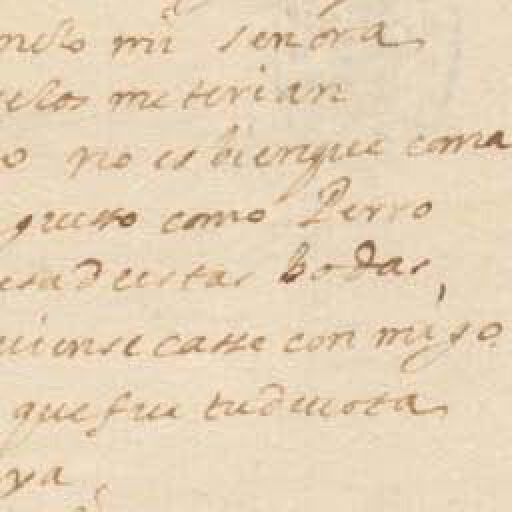 mi señora
los meterian
o no es bien que coma
gusto como Perro
destas bodas,
quien se case con migo
que fue tu devota
ya